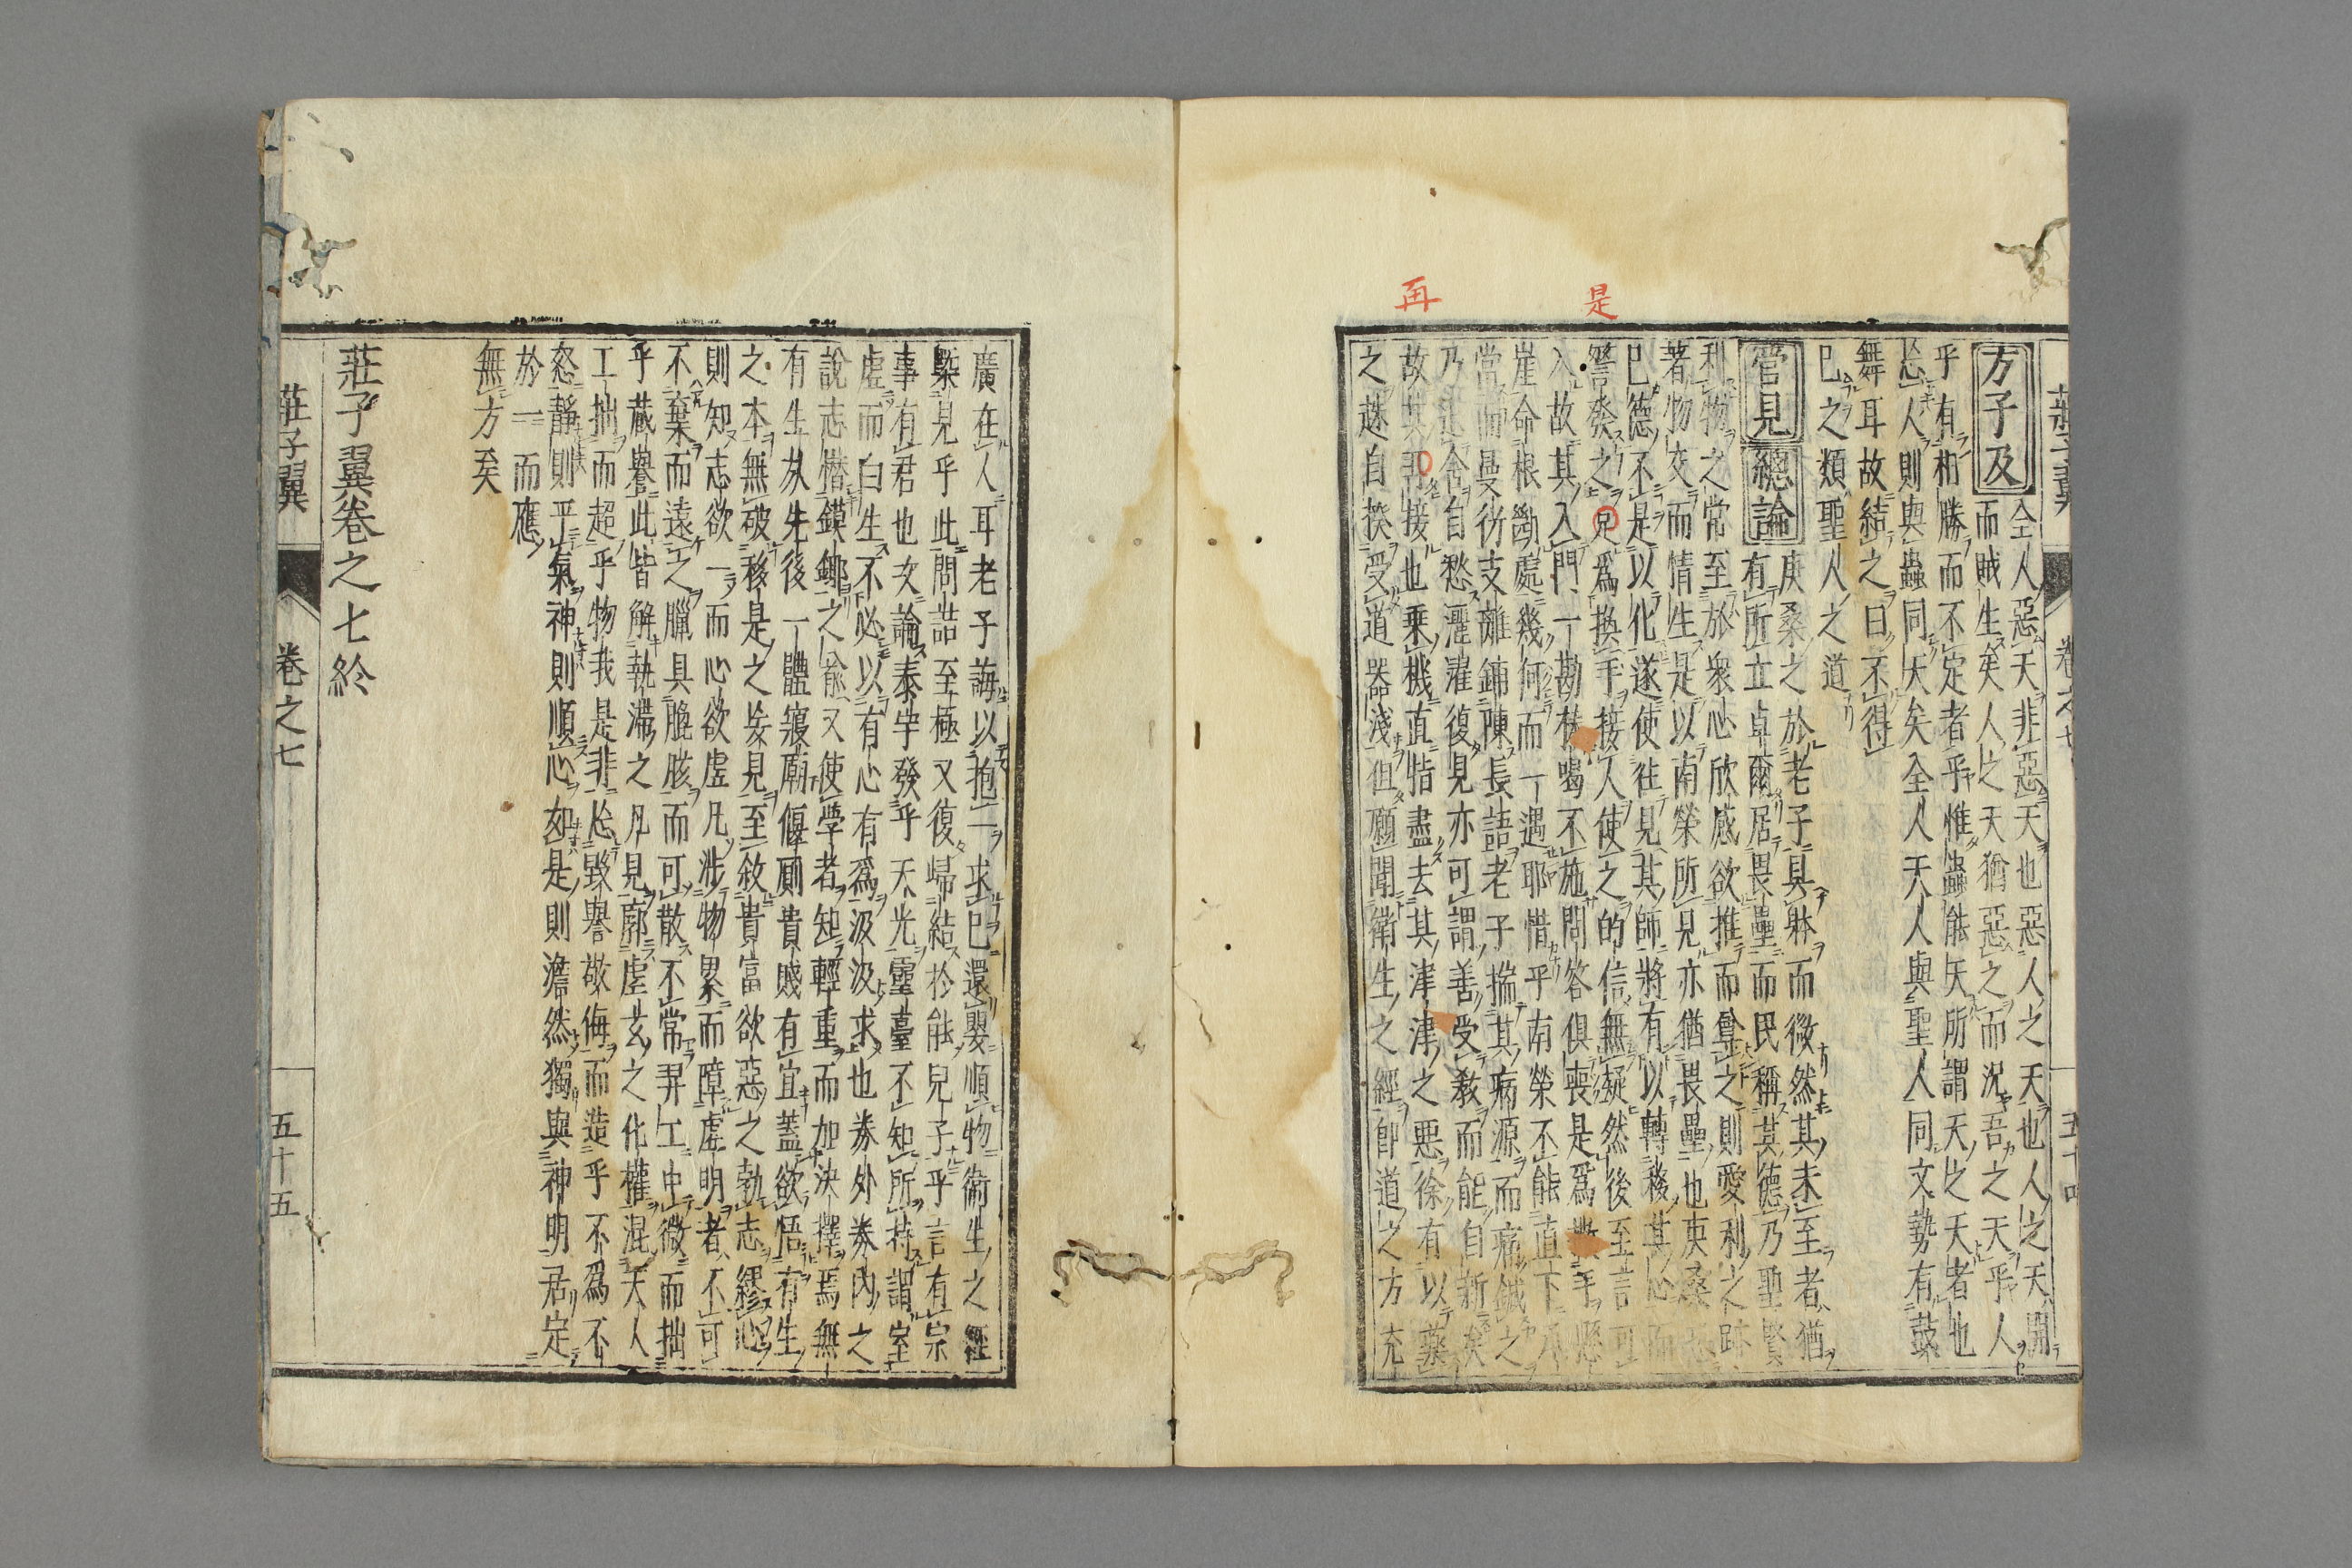 再
是
方子及
全人惡天非惡天也惡人之天也人之天開
而賊生矣人之天猶惡之而況吾之天乎人
乎有相勝而不定者乎惟蟲能天所謂天之天者也
忘人則與蟲同天矣全人天人與聖人同文勢有鼓
舞耳故結之曰不得
已之類聖人之道
管見總論
庚桑之於老子具躰而微然其未至者猶
有所立卓爾居畏壘而民稱其德乃聖賢
利物之常至於衆心欣感欲推而尊之則愛利之跡
著物交而情生是以南榮所見亦猶畏壘也庚桑
已德不是以化遂使往見其師將有以轉移其心而
答癸之足爲換手接人使之的信無疑然後至言可
入故其入門一勘棒喝不施問答俱喪是爲撒手懸
崖命根斷處幾何而一遇耶惜乎南榮不能直下
當而曼衍支離鋪陳長語老子揣其病源而痛鍼之
乃退舍自愁灑濯復見亦可謂善受教而能自新矣
故其 接也乗機直指盡去其津津之惡徐有以藥
之趎自揆受道器淺但願聞衛生之經卽道之方充
廣在人耳老子誨以抱一求己還嬰順物衛生之經
槩見乎此問詰至極又復歸結於能兒子乎言有宗
事有君也次論泰宇發乎天光靈臺不知所持謂室
虛而白生不必以有心有爲汲汲求也券外券内之
說志憯鏌鋣之喩又使學者知輕重而加決擇焉無
有生死先後一體寢廟偃廁貴賤有宜蓋欲悟有生
之本無破移是之妄見至敘貴富欲惡之勃志繆心
則知志欲一而心欲虛凡涉物累而障虛明者不可
不棄而遠之臘具膍胲而可散不常羿工中微而拙
乎藏譽此皆解執滯之凡見廓虛玄之化權混天人
工拙而超乎物我是非忘毀譽敬侮而造乎不爲不
怒靜則平氣神則順心如是則澹然獨與神明居定
於一而應
無方矣
莊子翼卷之七終
莊子翼
卷之七
五十五